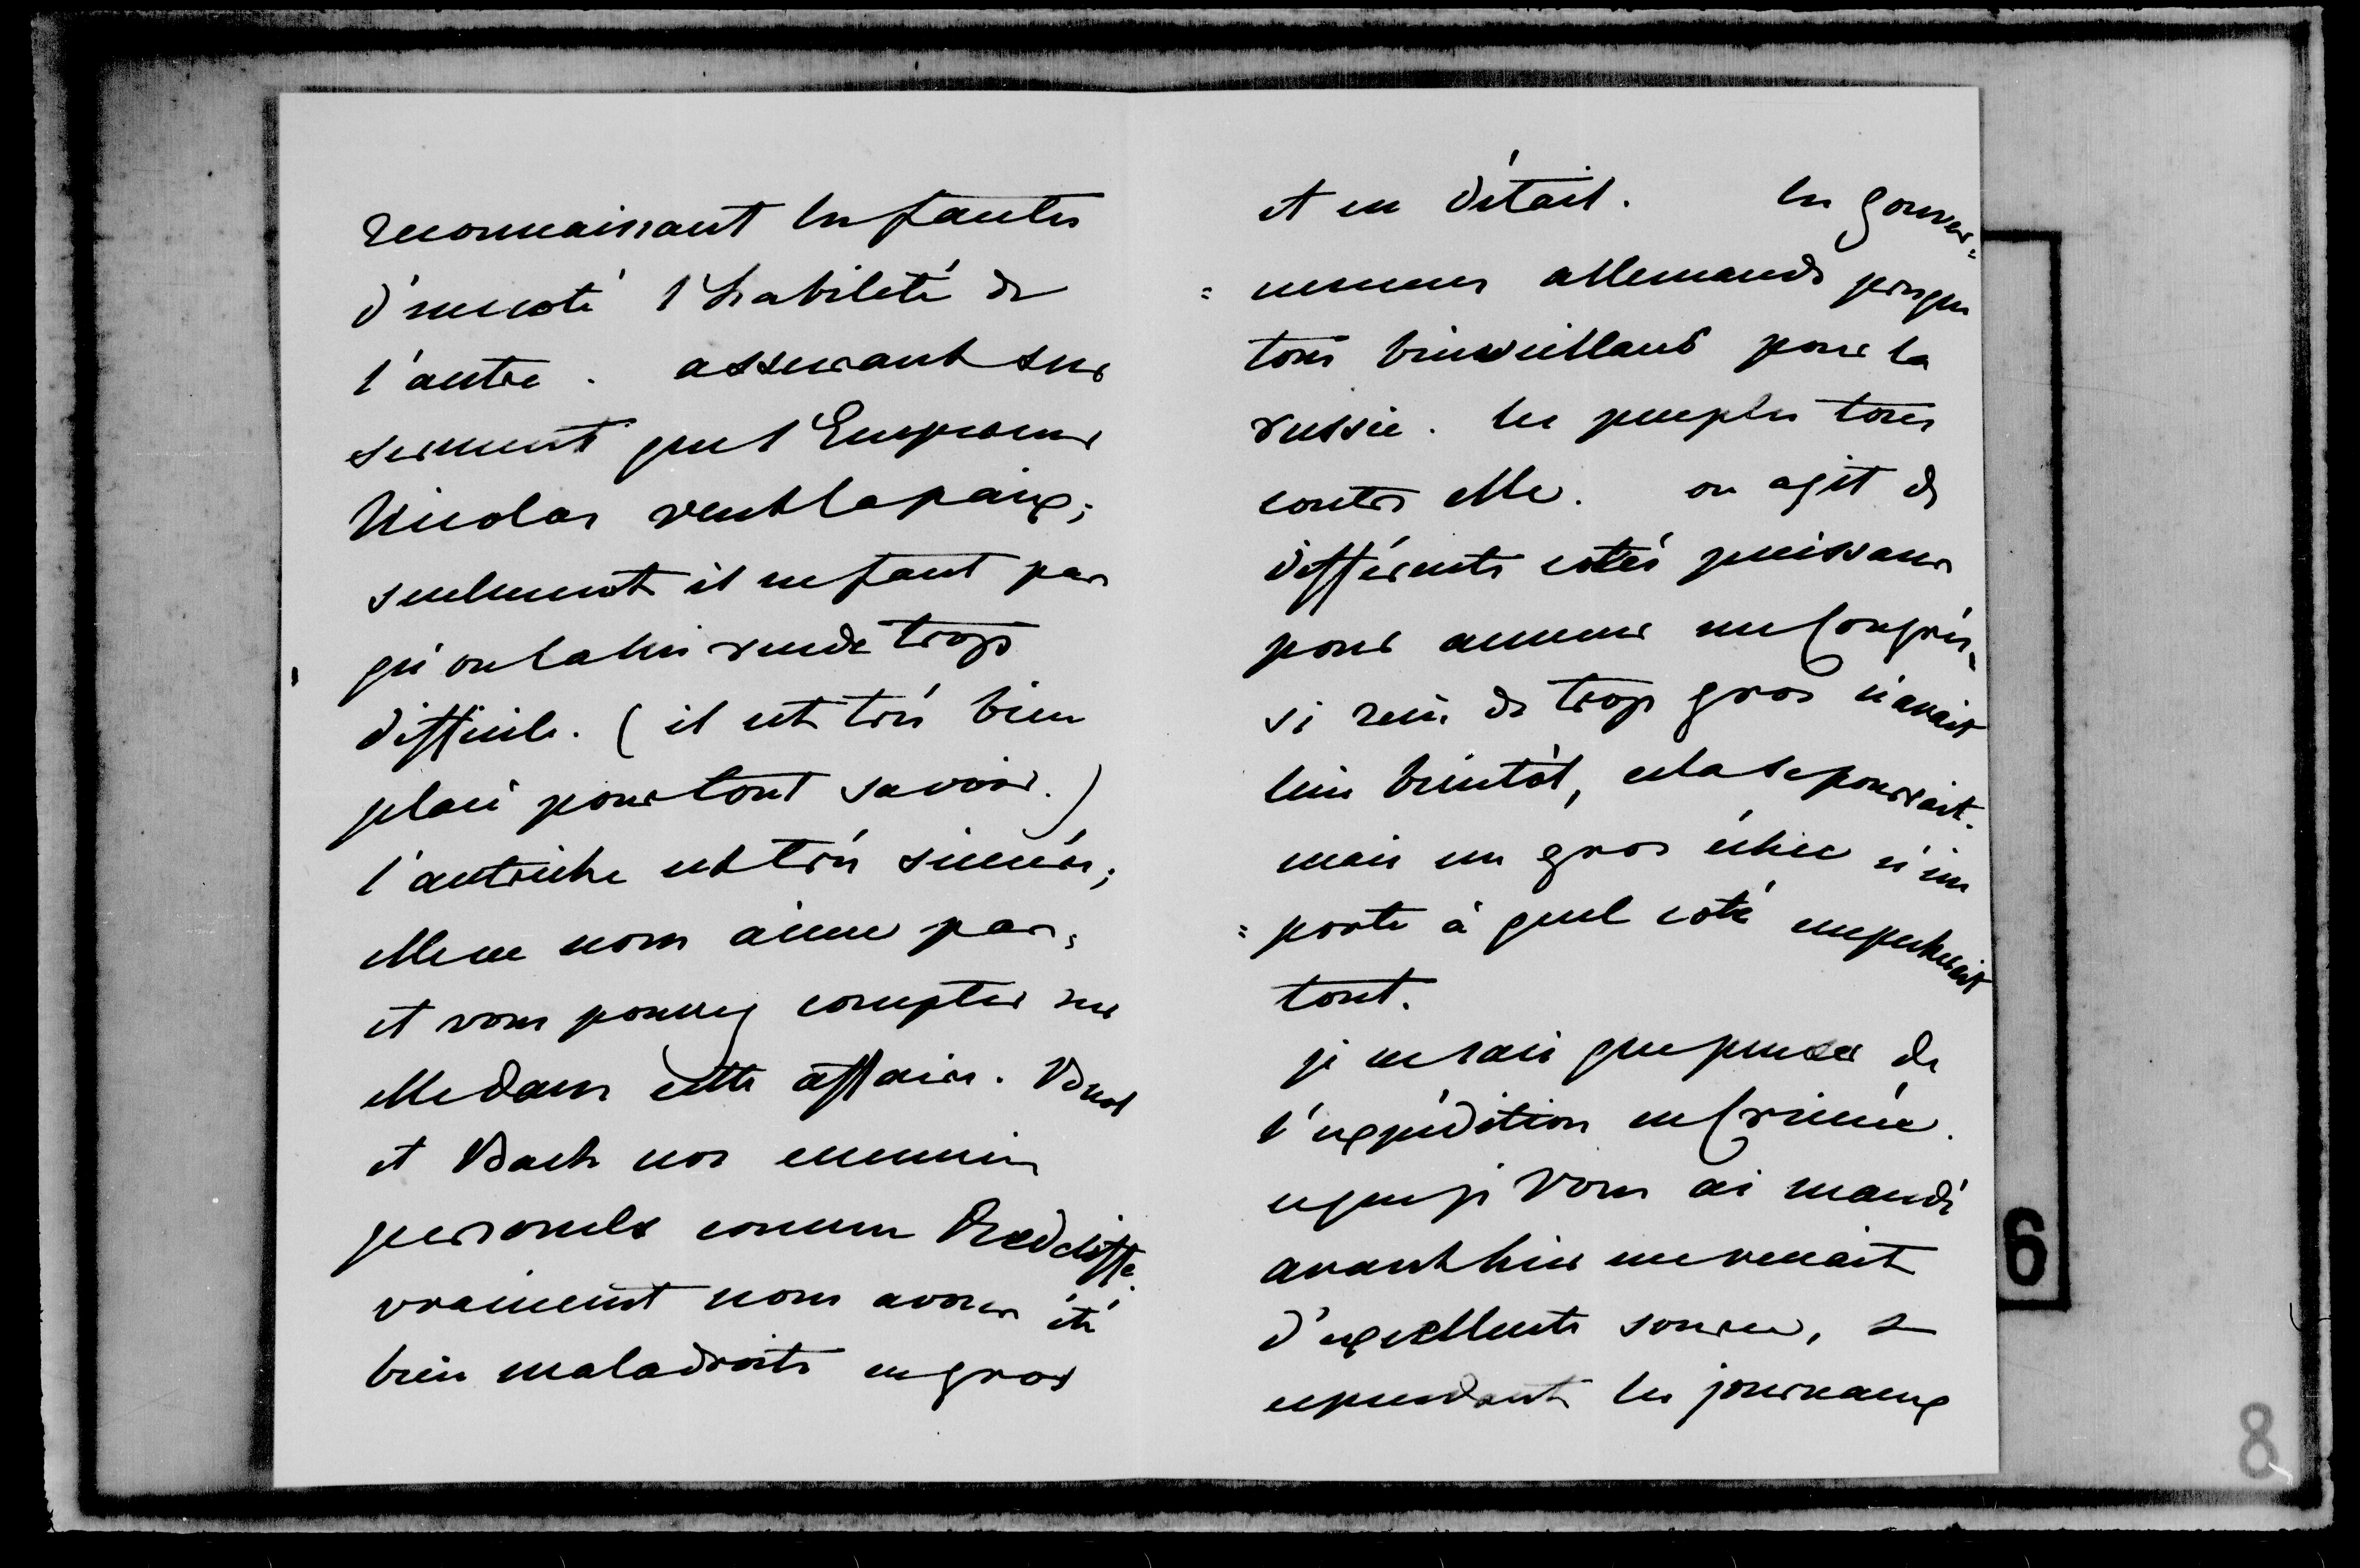 reconnaissant les fautes
d'un coté l'habileté de
l'autre. assurant sur
serment que l'Empereur
Nicolas veut la paix;
seulement il ne faut pas
qu'on la lui rende trop
difficile. (il est très bien
placé pour tout savoir.)
l'autriche est très sincère;
elle ne nous aime pas,
et vous pouvez compter sur
elle dans cette affaire. Buol
et Bach nos ennemis
personels comme Redcliffe.
vraiement nous avons été
bien maladroits en gros
et en détail. les gouver=
=nemens allemands presque
tous bienveillans pour la
russie. les peuples tous
contre elle. on agit de
différents cotés puissans
pour amener un Congrès,
si rien de trop gros n'avait
lieu bientôt, cela se pourrait.
mais un gros échec n'im
=porte à quel coté empecherait
tout.
je ne sais que penser de
l'expédition en Crimée.
ce que je vous ai mandé
avant hier me venait
d'excellente source, &
cependant les journaux
6
8